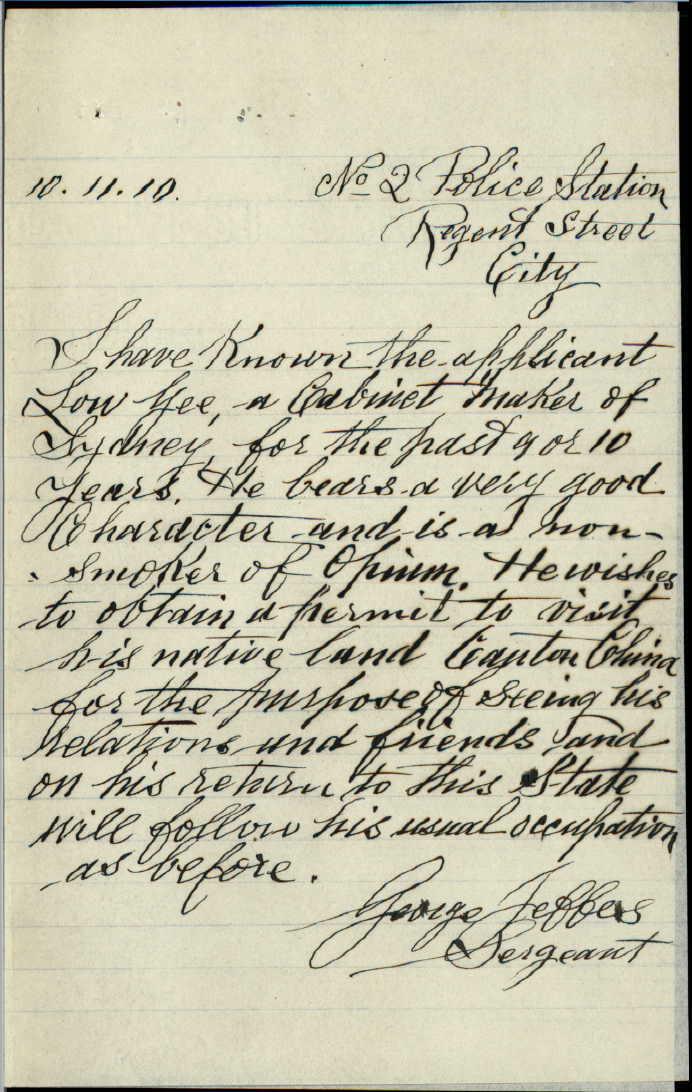 10.11.10.
No 2 Police Station
Regent Street
City
I have Known the applicant
Low Yee, a Cabinet Maker of
Sydney, for the past 9 or 10
Years. He bears a very good
Character and is a non-
- smoker of Opium. He wishes
to obtain a permit to visit
his native land Canton China
for the purpose of seeing his
relations and friends and
on his return to this State
will follow his usual occupation
as before.
George Jeffers
Sergeant